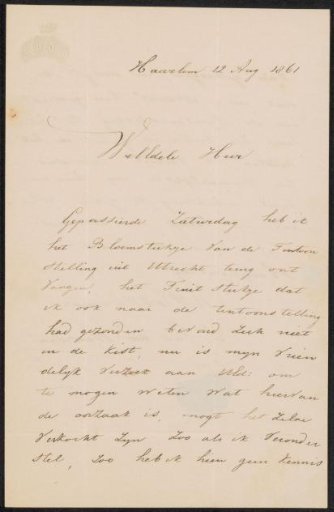 Haarlem 12 Aug 1861
WelEdele Heer
Gepasseerde Zaturdag heb ik
het Bloemstukje van de Tentoon
stelling uit Utrecht terug ont
vangen, het Fruit stukje dat
ik ook naar de tentoonstelling
had gezonden bevond zich niet
in de kist, nu is mijn vrien
delijk verzoek aan UEd: om
te mogen weten wat hiervan
de oorzaak is, mogt het zelve
verkocht zijn zoo als ik veronder
stel, zoo heb ik hier geen kennis